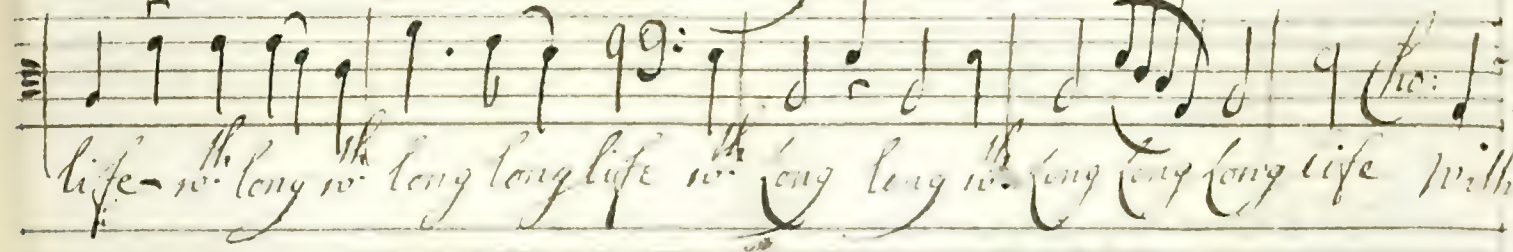 Cho:
life - wth. long wth. long long life wth. long long wth. long long long life with